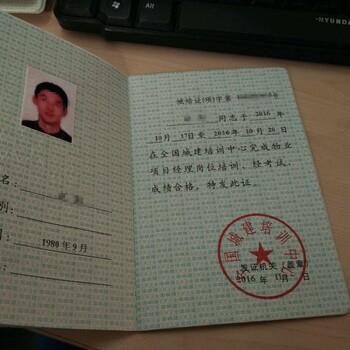 HYUNDAI
Alt
城培证(项)字第
同志于 2016 年
10月 17日至 2016年 10月 20日
在全国城建培训中心完成物业
项目经理岗位培训，经考试，
成绩合格，特发此证。
名：
别：
1980 年 9 月
国城建培训中
发证机关（盖章）
2016 年 11月 日